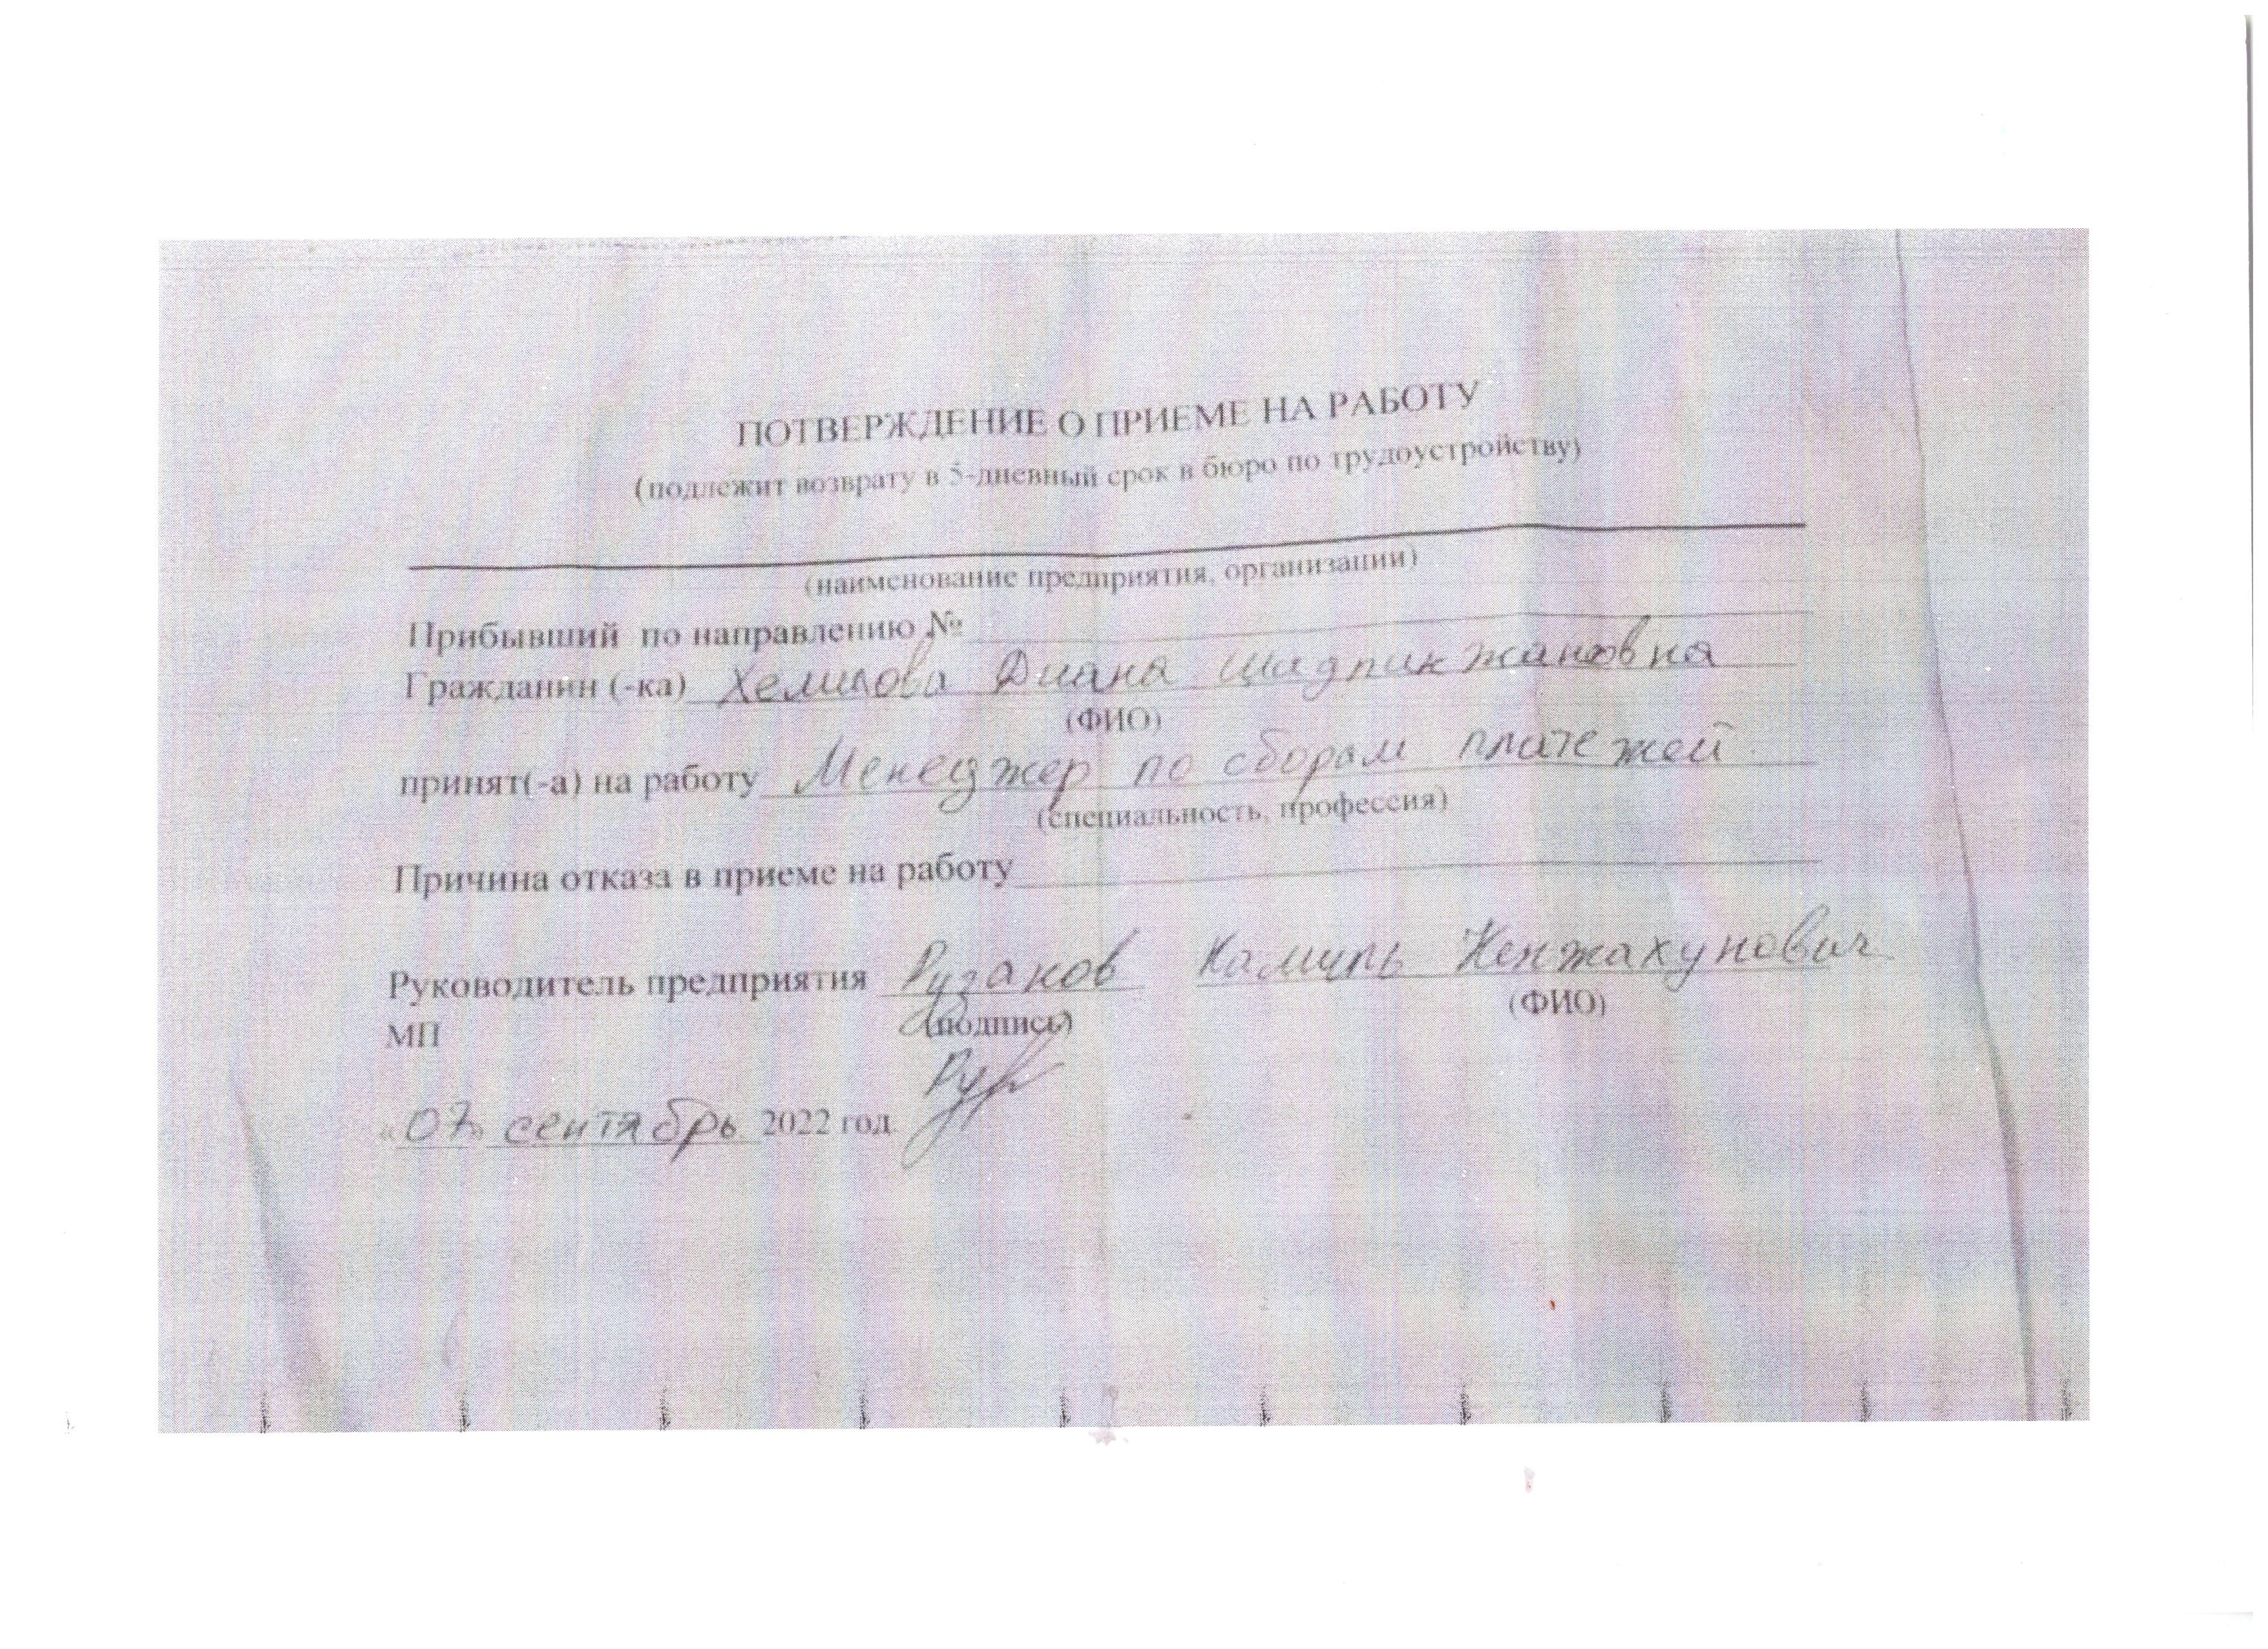 ПОТВЕРЖДЕНИЕ О ПРИЕМЕ НА РАБОТУ
(подлежит возврату в 5-дневный срок в бюро по трудоустройству)
(наименование предприятия, организации)
Прибывший по направлению №
Гражданин (-ка) Хемилова Диана Шадпикжановна
(ФИО)
принят(-а) на работу Менеджер по сборам платежей
(специальность, профессия)
Причина отказа в приеме на работу
Руководитель предприятия Рузаков Камиль Кенжахунович
МП (подпись) (ФИО)
«07» сентябрь 2022 год